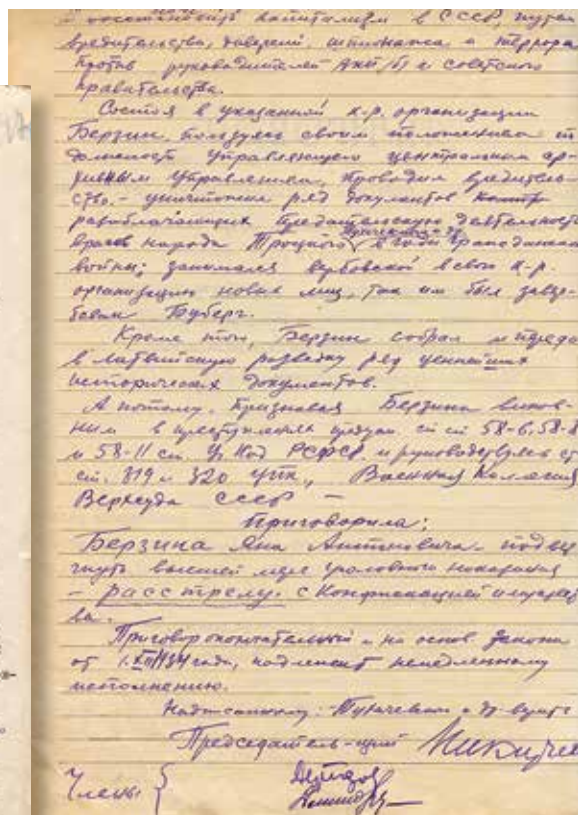 капитализм в СССР, путем
вредительства, диверсий, шпионажа и террора
против руководителей ВКП/б/ и советского
правительства.
Состоя в указанной к.р. организации
Берзин, пользуясь своим положением в
должности Управляющего центральным ар-
хивным Управлением, проводил вредитель-
ство, - уничтожил ряд документов
разоблачающих предательскую деятельность
врагов народа Троцкого, в годы гражданской
войны; занимался вербовкой в свою к-р.
организацию новых лиц, так им был завер-
бован Буберг.
Кроме того, Берзин собрал и переда
в латвийскую разведку ряд ценнейших
исторических документов.
А потому, признавая Берзина винов-
ным в преступлениях предус. ст ст 58-6, 58-8
и 58-11 ст. Ук Код РСФСР, и руководствуясь ст
ст. 319 и 320 УПК, Военная Коллегия
Верхсуда СССР -
приговорила:
Берзина Яна Антоновича - подвер
гнуть высшей мере уголовного наказания
- расстрелу, с конфискацией имущест
ва.
Приговор окончательный и на основ закона
от 1.XII/1934 года, подлежит немедленному
исполнению.
Надписанному: Тухачевского и др - верить
Председатель-щий
Члены